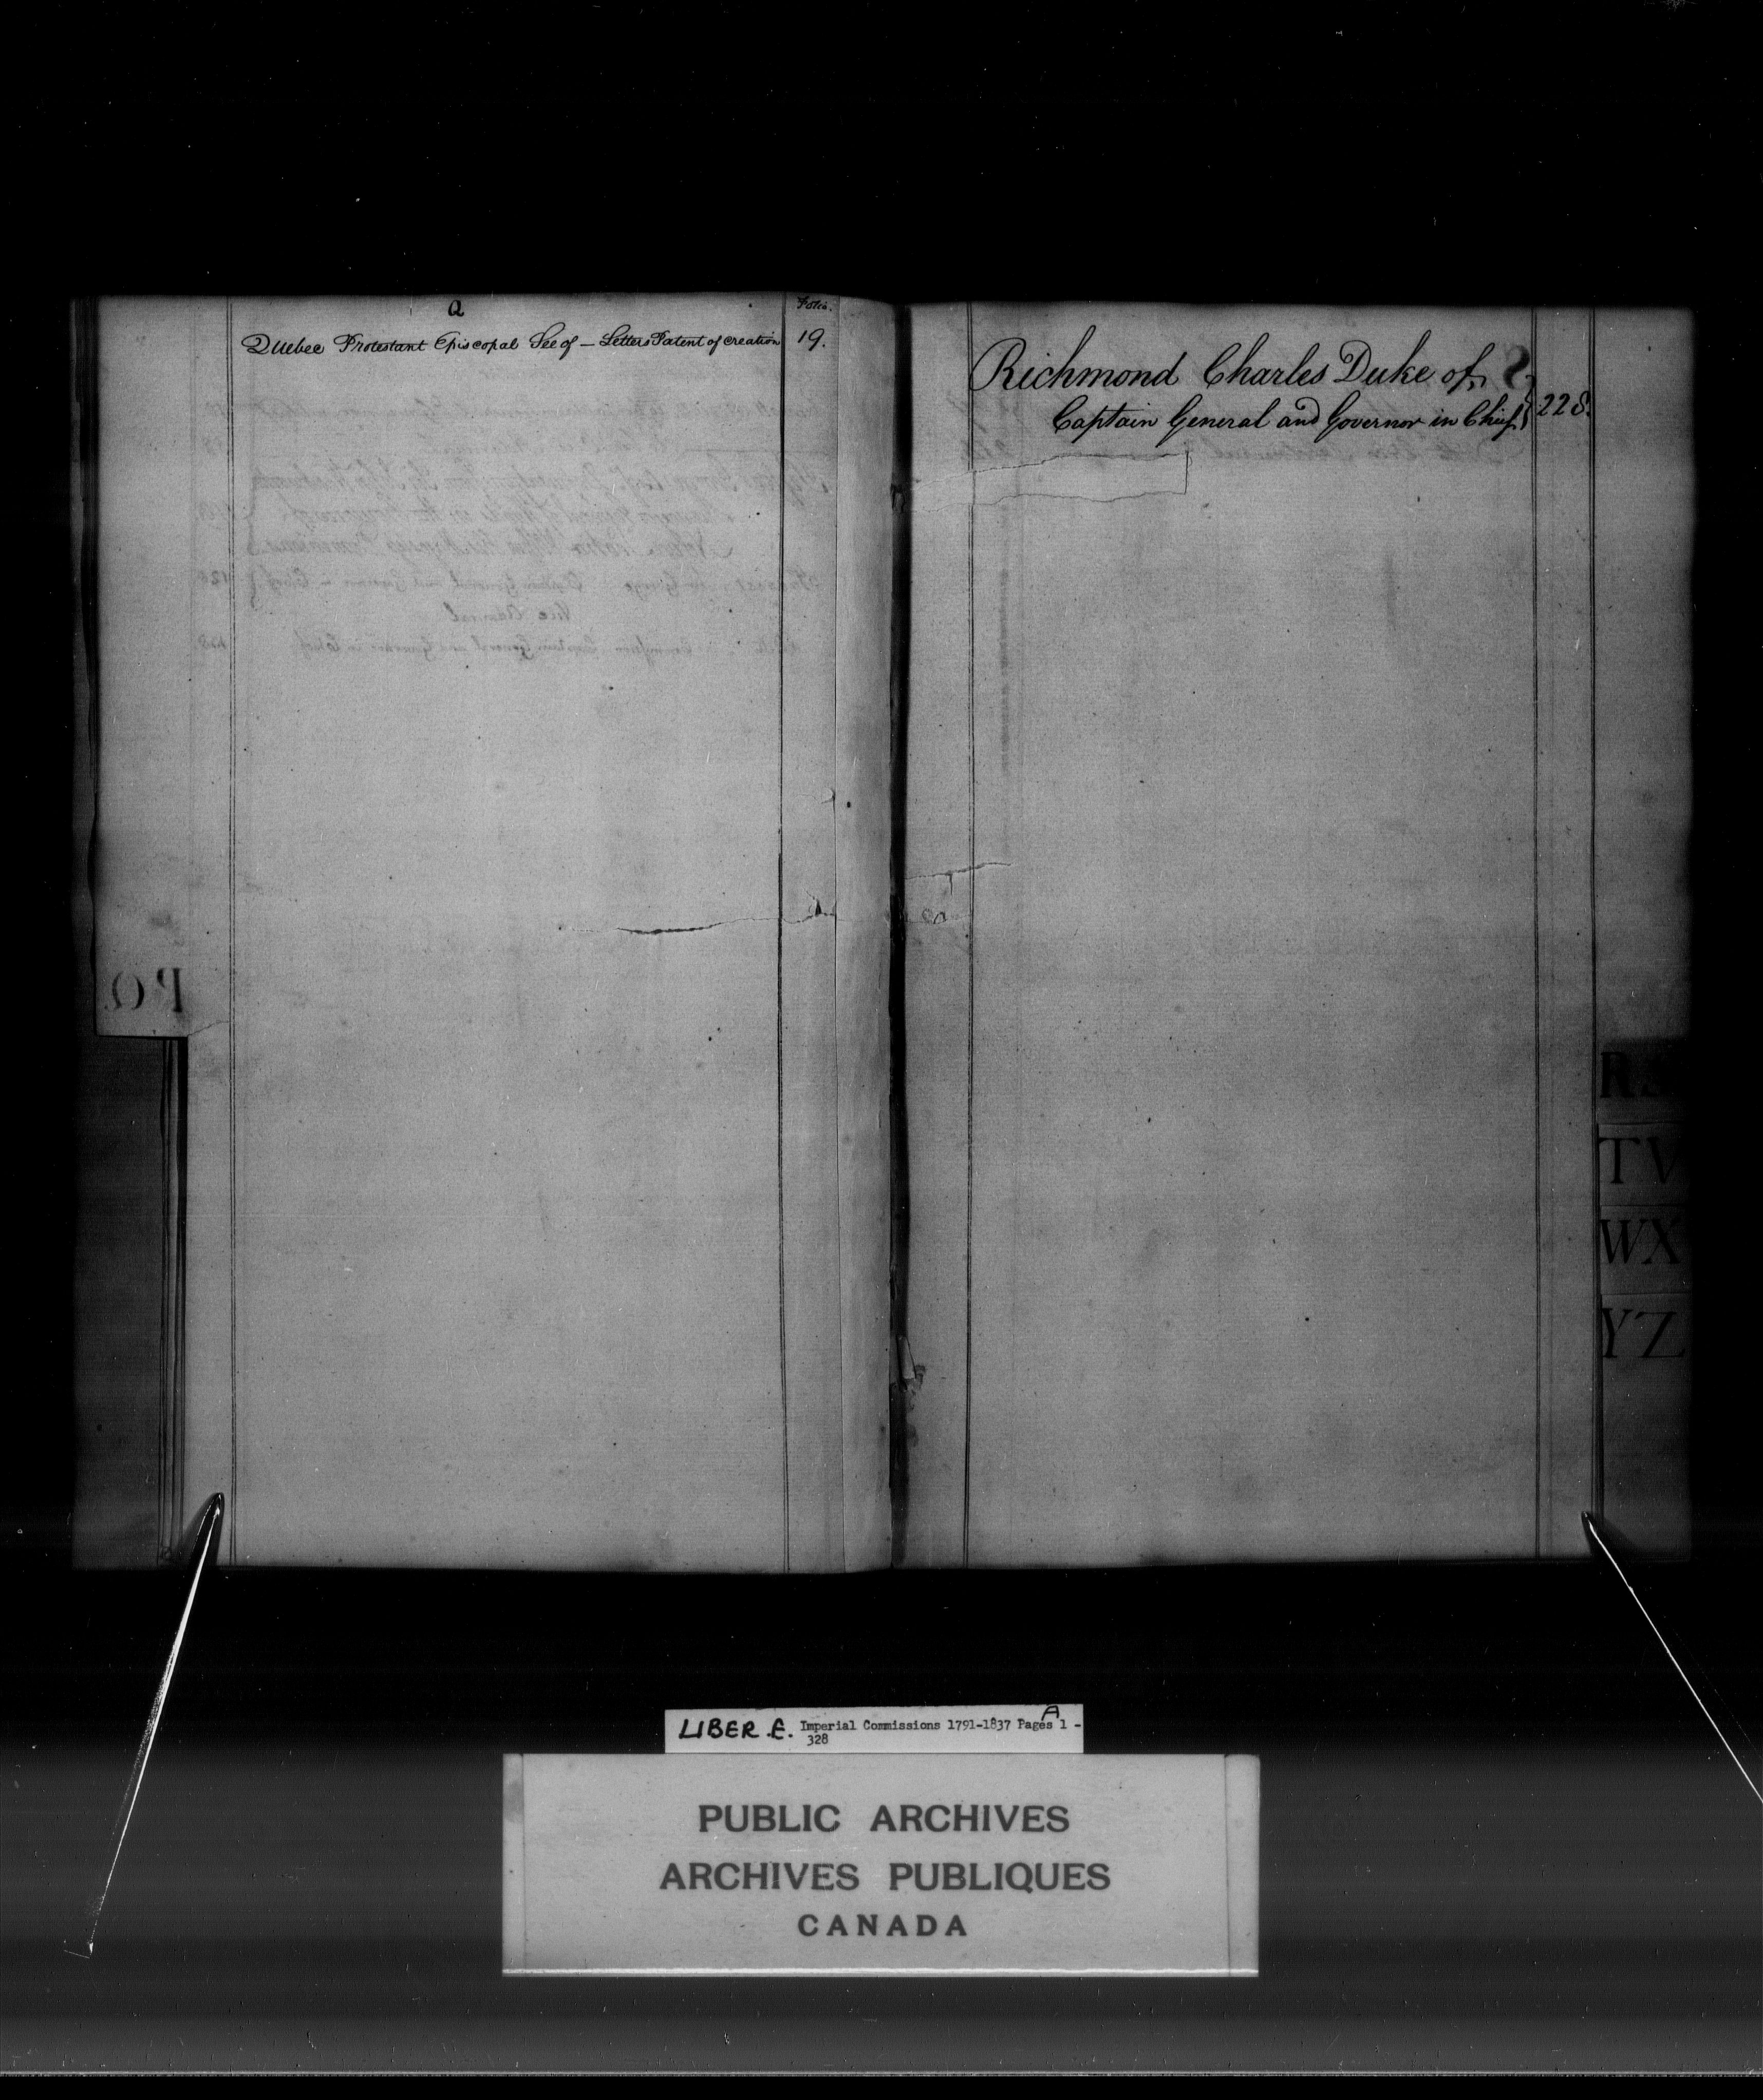 Q
Folio.
Quebec Protestant Episcopal See of – Letters Patent of creation 19.
Richmond Charles Duke of
Captain General and Governor in Chief } 228.
PQ
RS
TV
WX
YZ
LIBER E. Imperial Commissions 1791-1837 Pages A 1 -
328
PUBLIC ARCHIVES
ARCHIVES PUBLIQUES
CANADA